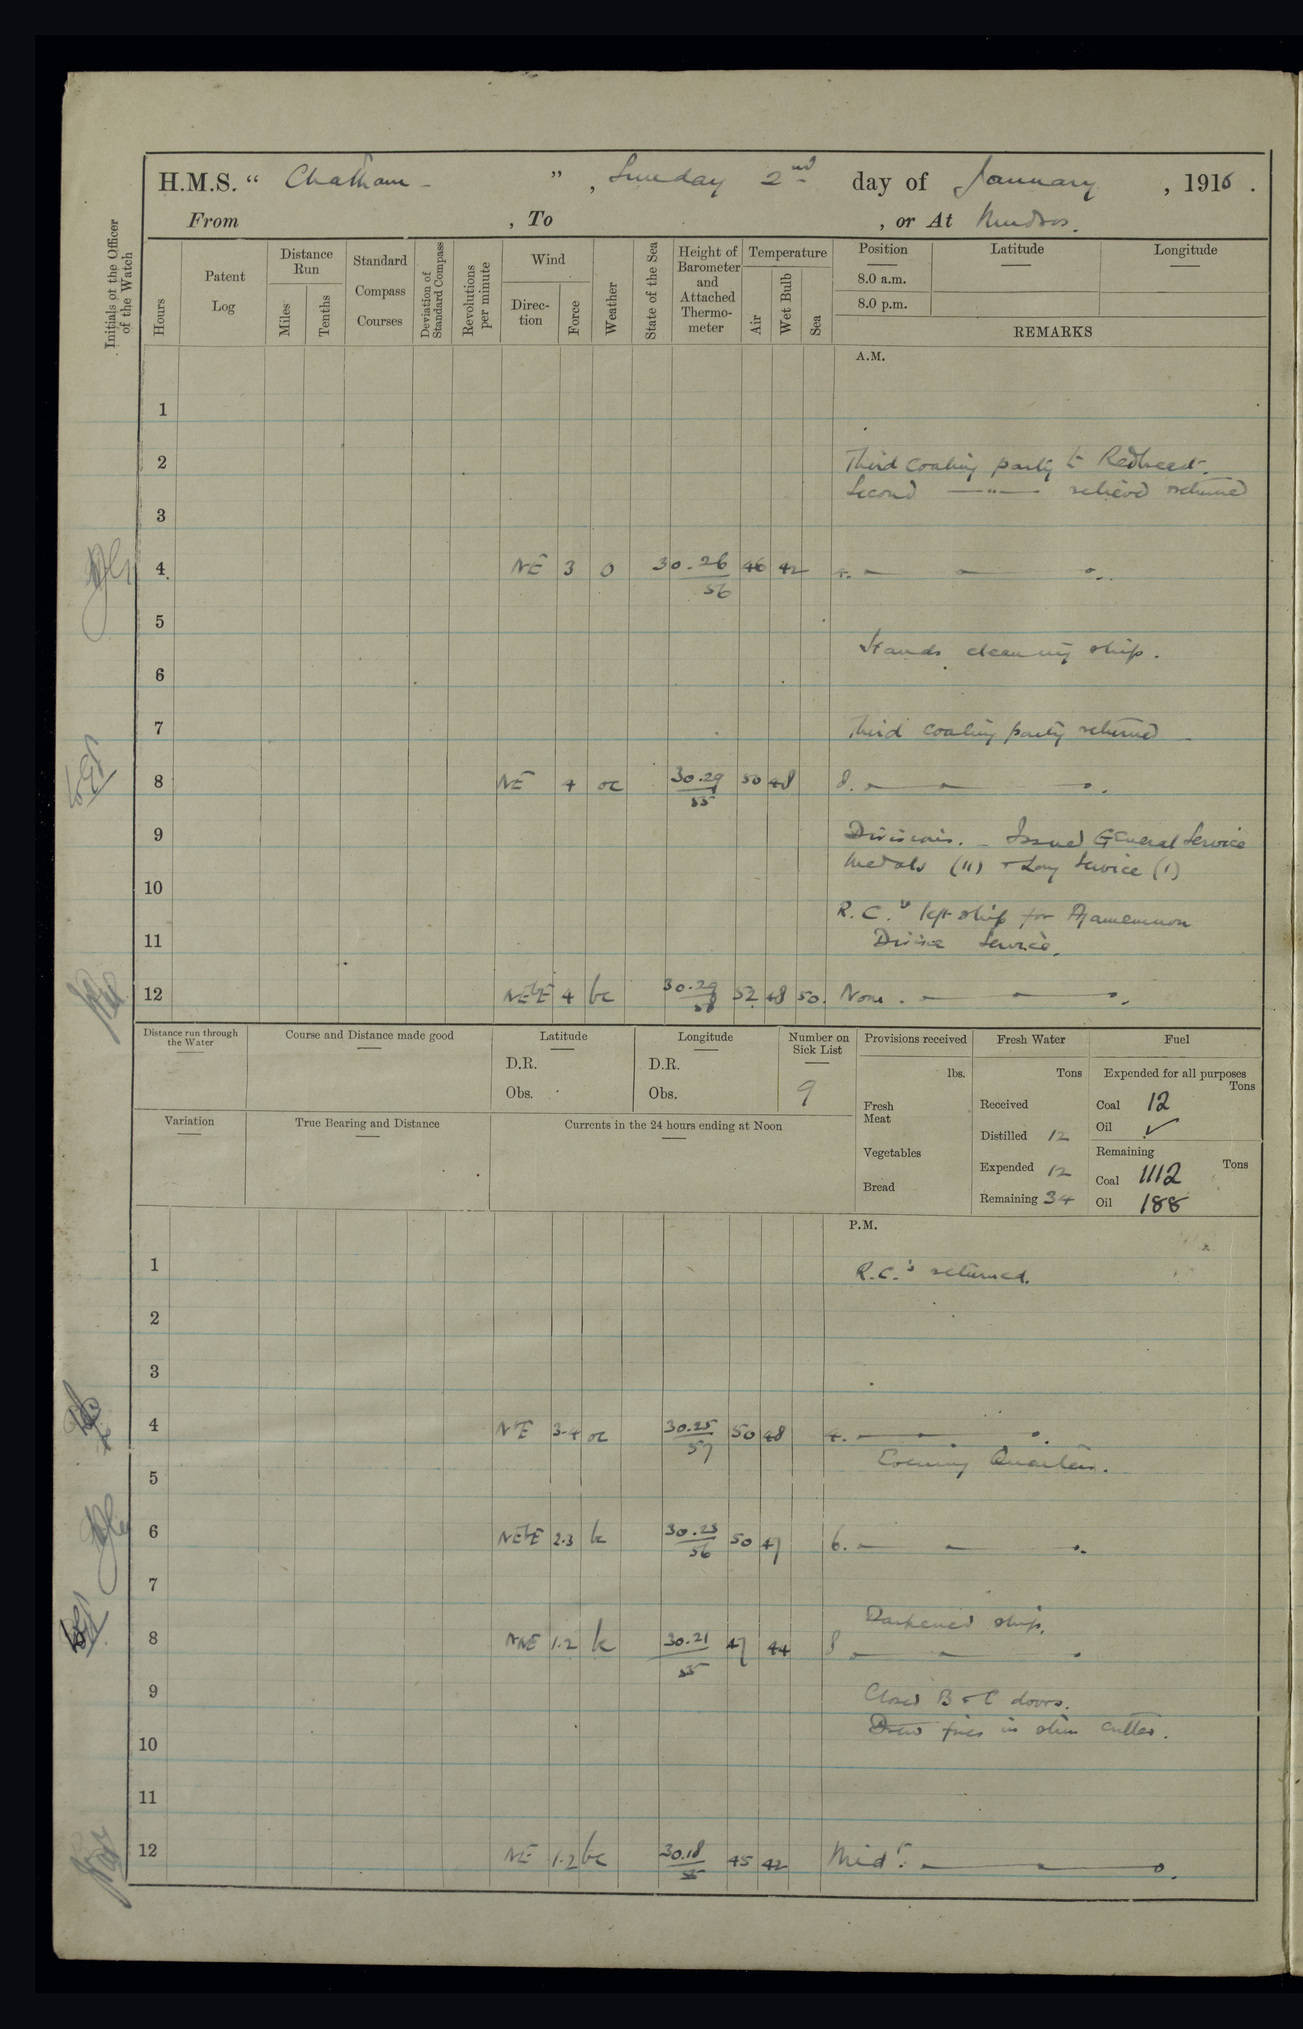 H.M.S. “ Chatham ” , Sunday 2nd day of January , 1916 .
From , To , or At Mudros.
Initials of the Officer of the Watch
Hours
Patent Log
Distance Run
Miles
Tenths
Standard Compass Courses
Deviation of Standard Compass
Revolutions per minute
Wind
Direc-tion
Force
Weather
State of the Sea
Height of Barometer and Attached Thermo-meter
Temperature
Air
Wet Bulb
Sea
Position Latitude Longitude
8.0 a.m.
8.0 p.m.
REMARKS
A.M.
1
2 Third coaling party to Redbreast.
Second —"— relieved returned
3
4 NE 3 o 30.26 46 42 4.
56
5
Hands cleaning ship.
6
7 Third coaling party returned
8 NE 4 oc 30.29 50 48 8.
55
9 Divisions. - Issued General Service
Medals (11) + Long Service (1)
10
R.C.s left ship for Agamemnon
11 Divine Service.
12 NEbE 4 bc 30.29 52 48 50. Noon.
58
Distance run through the Water
Course and Distance made good
Latitude
D.R.
Obs.
Longitude
D.R.
Obs.
Number on Sick List
9
Provisions received
lbs.
Fresh Meat
Vegetables
Bread
Fresh Water
Tons
Received
Distilled 12
Expended 12
Remaining 34
Fuel
Expended for all purposes
Tons
Coal 12
Oil ✓
Remaining
Tons
Coal 1112
Oil 188
Variation
True Bearing and Distance
Currents in the 24 hours ending at Noon
P.M.
1 R.C.'s returned.
2
3
4 NE 3-4 oc 30.25 50 48 4.
57
Evening Quarters.
5
6 NEbE 2.3 b 30.23 50 47 6.
56
7
Darkened ship.
8 NNE 1.2 b 30.21 47 44 8
55
9 Closed B & C doors.
Drew fires in steam cutter.
10
11
12 NE 1.2 bc 30.18 45 42 Midt.
55